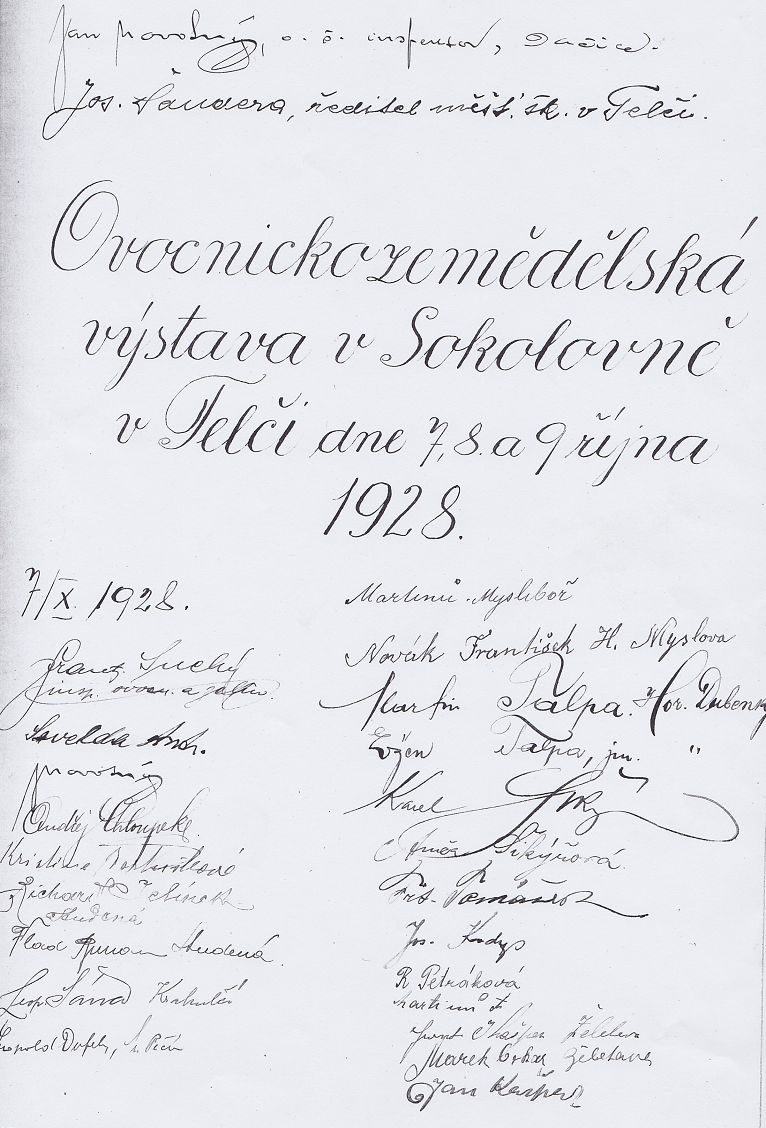 Jan Novotný, o. š. inspektor, Dačice.
Jos. Šandera, ředitel měšť. šk. v Telči.
Ovocnickozemědělská
výstava v Sokolovně
v Telči dne 7, 8. a 9 října
1928.
7/X. 1928.
Frant. Suchý
insp. ovocn. a
Savelda Ant.
Novotný
Ondřej Chloupek
Kristina
Richard Jelínek
Studená
Roman Studená
Leop. Sána
Leopold
Martinů Mysliboř
Novák František H. Myslova
Martin Talpa. Hor. Dubenky
Evžen Talpa, jn. "
Karel
Šikýřová.
Frt. Tomášek
Jos. Kodys
R Petráková
Martinů
Frant Kašpar Želetava
Marek Želetava
Jan Kašpar